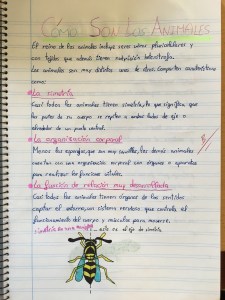 Cómo Son Los Animales
El reino de los animales incluye seres vivos pluricelulares y
con tejidos que además tienen nutrición heterótrofa.
Los animales son muy distintos unos de otros. Comparten características
como:
La simetría
Casi todos los animales tienen simetría, lo que significa, que
las partes de su cuerpo se repiten a ambos lados de eje o
alrededor de un punto central.
La organización corporal
Menos las esponjas, que son muy sencillas, los demás animales
cuentan con una organización corporal con órganos o aparatos
para realizar las funciones vitales.
La función de relación muy desarrollada
Casi todos los animales tienen órganos de los sentidos
captar el entorno, un sistema nervioso que controla el
funcionamiento del cuerpo y músculos para moverse.
este es el eje de simetría